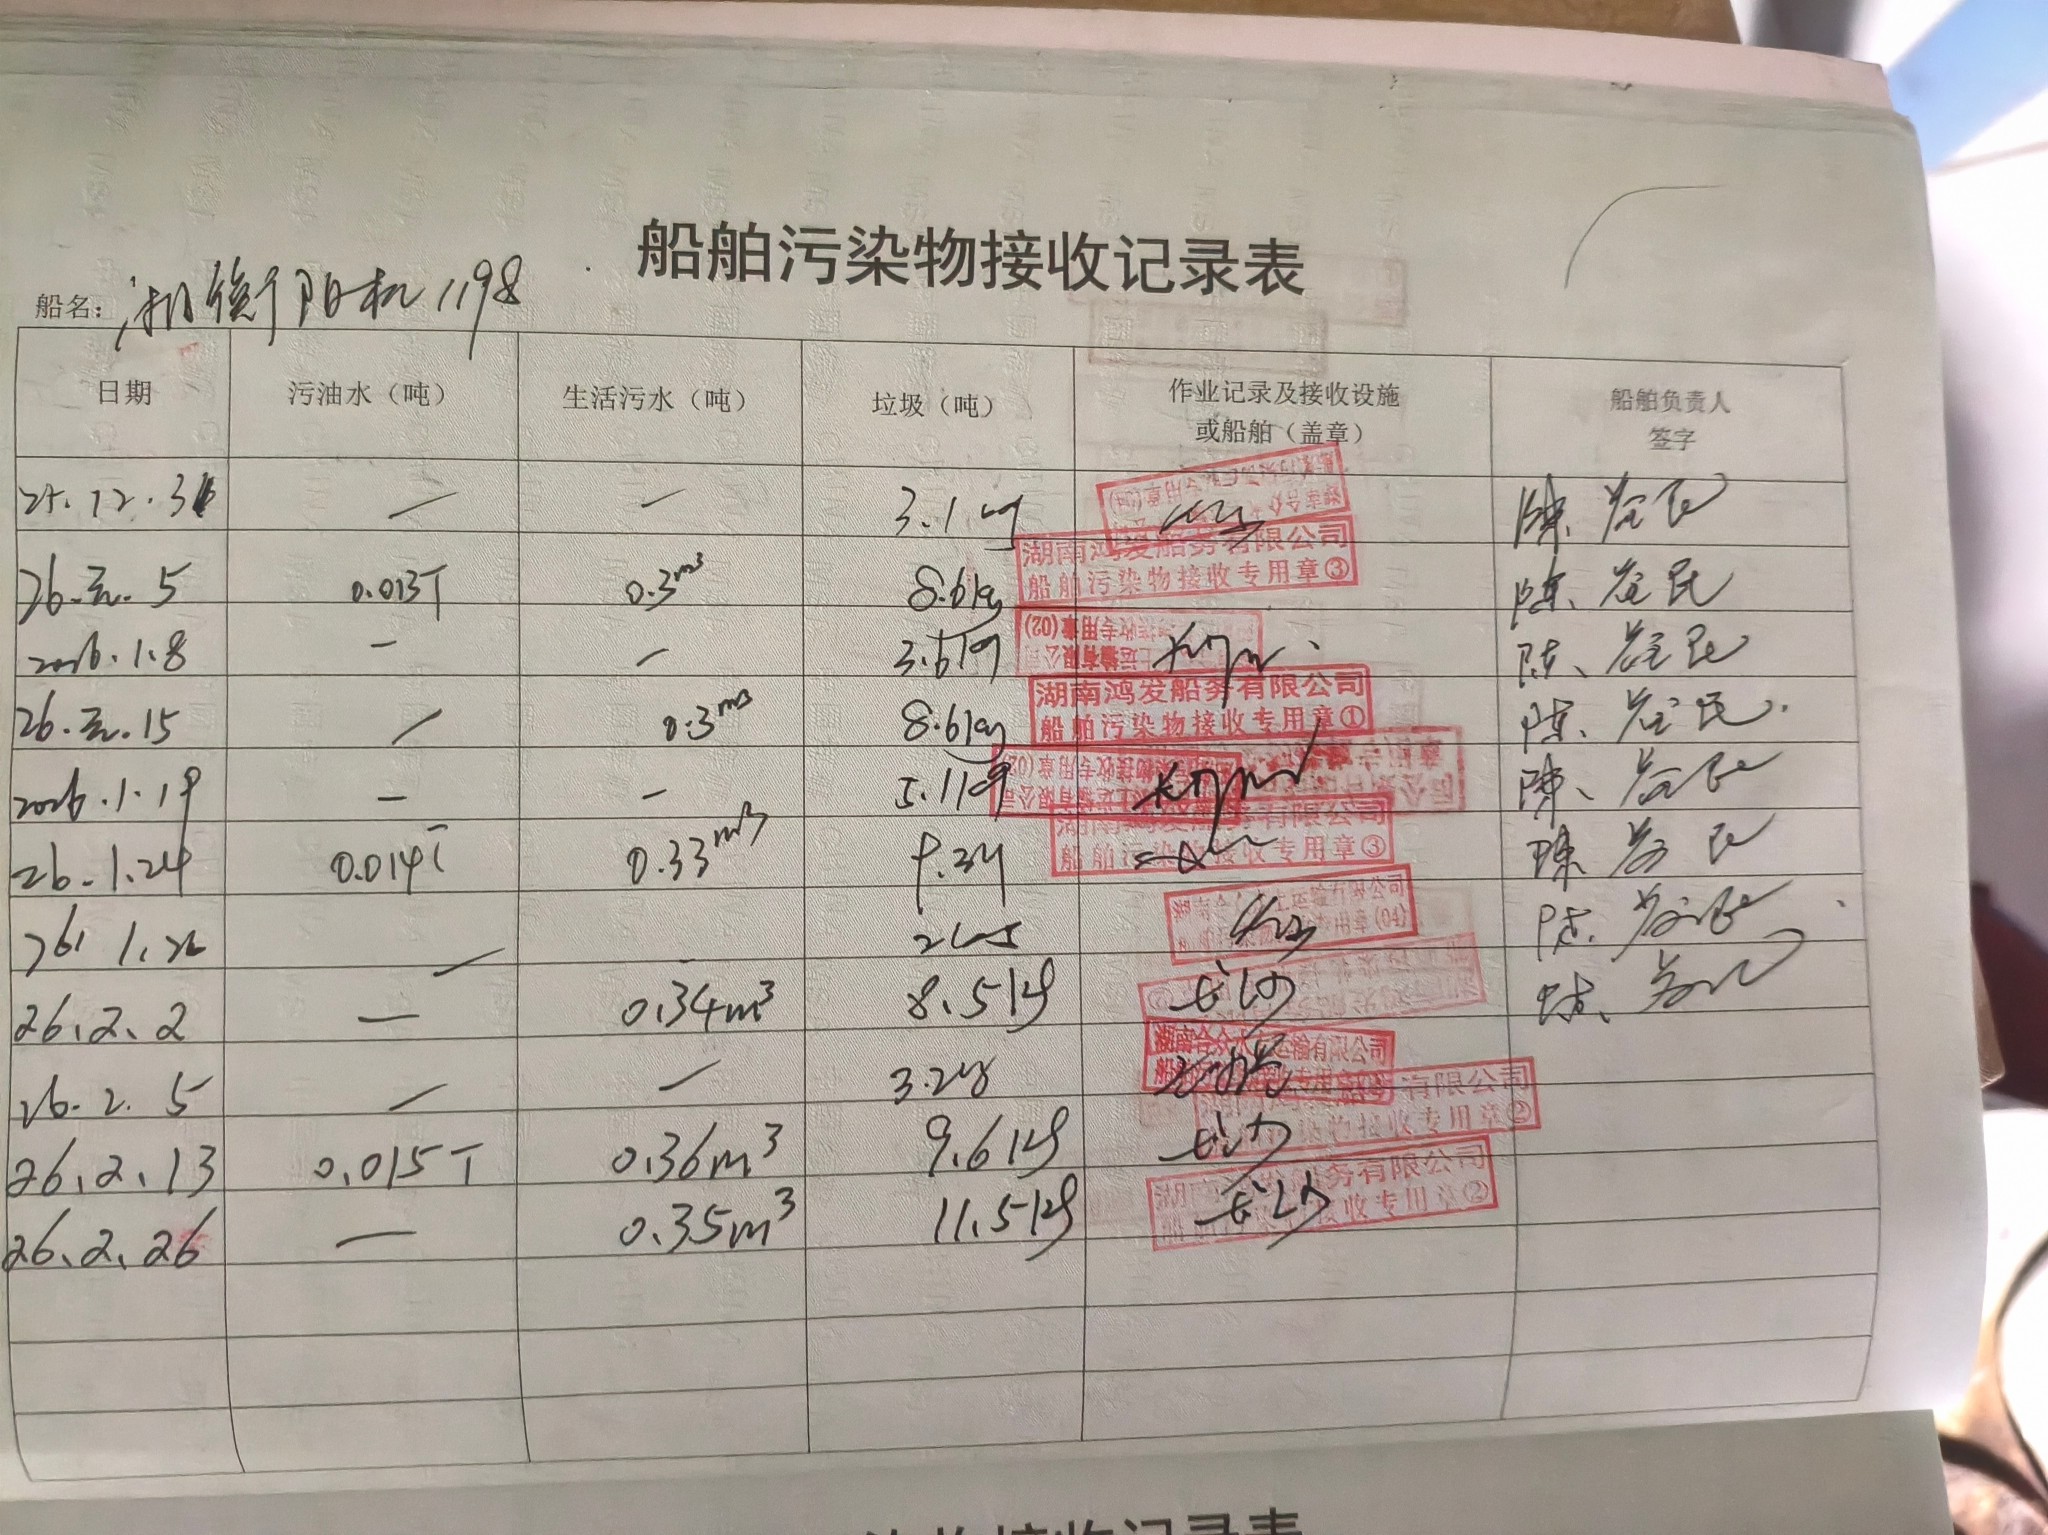 船舶污染物接收记录表
船名: 湘衡阳机1198
日期 污油水（吨） 生活污水（吨） 垃圾（吨） 作业记录及接收设施或船舶（盖章） 船舶负责人签字
25.12.31 — — 3.1kg 陈
26.元.5 0.013T 0.3m³ 8.6kg 湖南鸿发船务有限公司 船舶污染物接收专用章③ 陈 民
2026.1.8 — — 3.6kg 接收专用章(02) 陈 民
26.元.15 — 0.3m³ 8.6kg 湖南鸿发船务有限公司 船舶污染物接收专用章① 陈 民
2026.1.19 — — 5.1kg 陈
26.1.24 0.014T 0.33m³ 9.2kg 船舶污染物接收专用章③ 陈 民
26.1.26 — 运输有限公司 专用章(04) 陈
26.2.2 — 0.34m³ 8.5kg 长沙
26.2.5 — — 3.2kg 湖南合众水上运输有限公司
26.2.13 0.015T 0.36m³ 9.6kg 长沙 有限公司 接收专用章②
26.2.26 — 0.35m³ 11.5kg 长沙 船务有限公司 接收专用章②
接收记录表